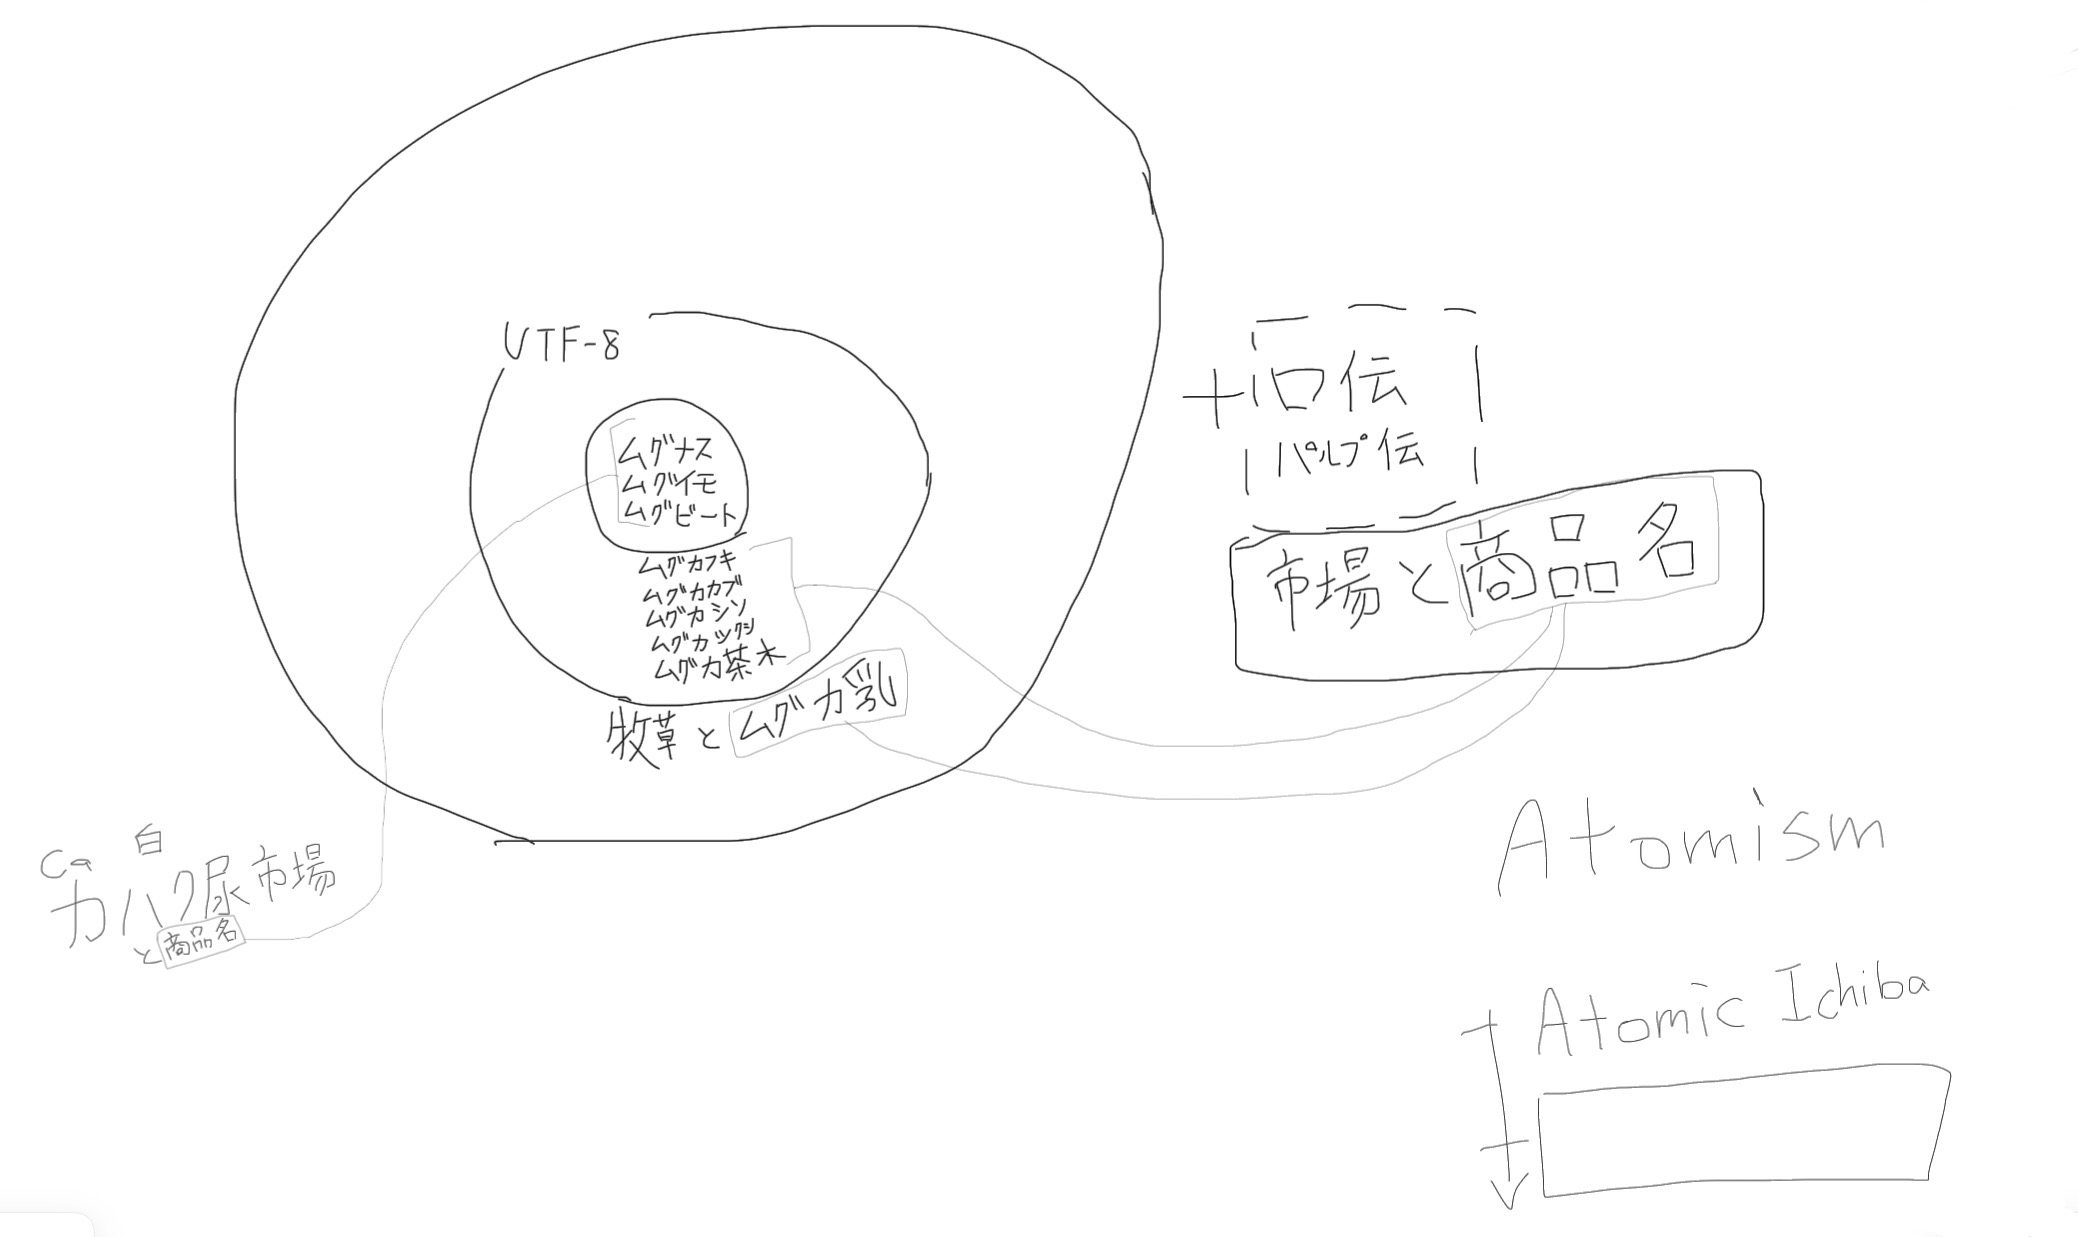 UTF-8
ムグナス
ムグイモ
ムグビート
ムグカフキ
ムグカカブ
ムグカシソ
ムグカツクシ
ムグカ茶木
牧草とムグカ乳
+口伝
パルプ伝
市場と商品名
Ca 白
カハク尿市場
と商品名
Atomism
Atomic Ichiba